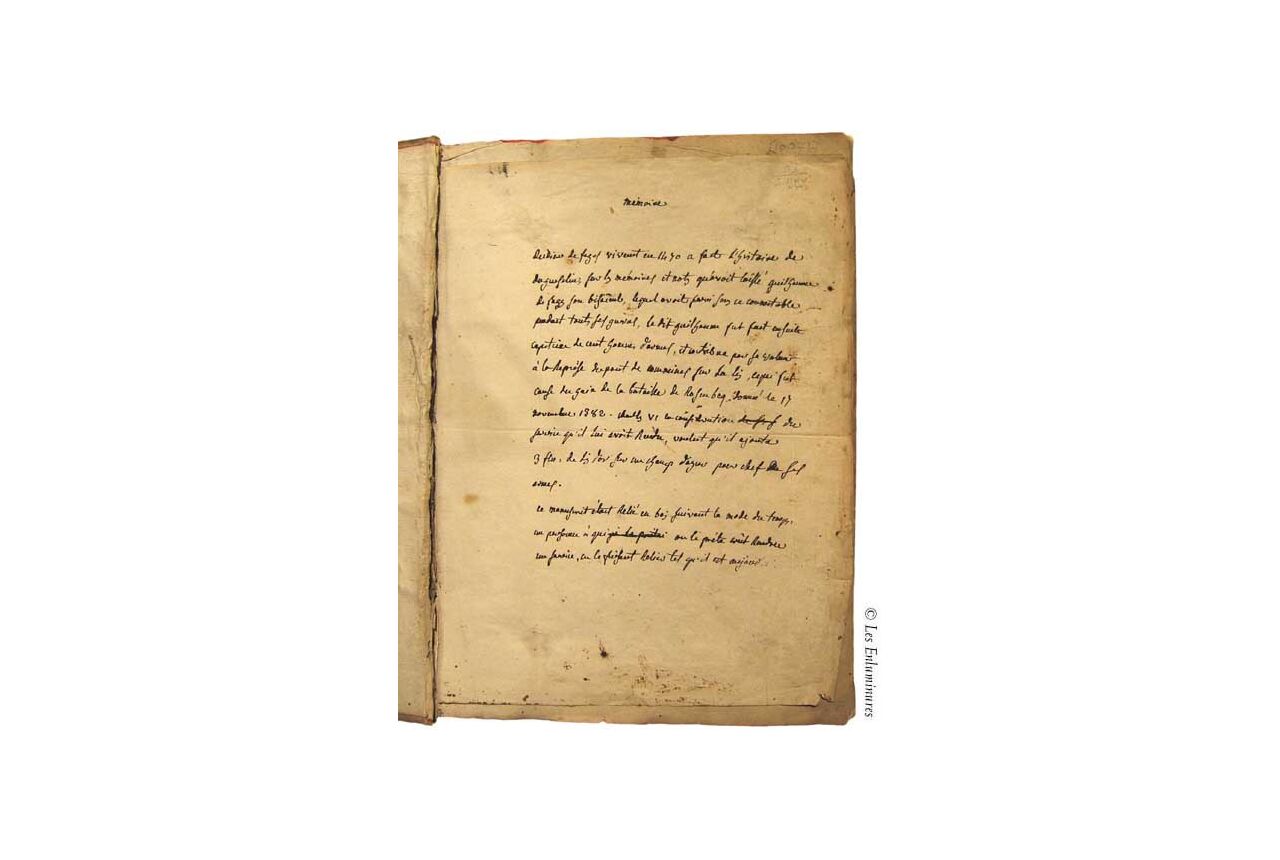 mémoire
de fages vivant en 1470 a fait l'histoire de
duguesclin, sur les mémoires et nots qu'avoit laissé guilhaume
de fages son bisaieule, lequel avoit servi sous ce connoitable
pendant touts ses guerres, le dit guilhaume fut fait ensuite
capitaine de cent homes d'armes, et contribua par sa valeur
à la Reprise du pont de commines sur la lis, ce qui fut
cause du gain de la bataille de Rosembeq, donné le 17
novembre 1382. charles VI en considération du
service qu'il lui avoit Rendu, voulut qu'il ajouta
3 fleu. de lis d'or sur un champ d'azur pour chef de ses
armes.
ce manuscrit étant Relié en bois suivant la mode du temps,
un personne à qui on la prêté crût Rendre
un service, en le faisant Relier tel qu'il est
© Les Enluminures